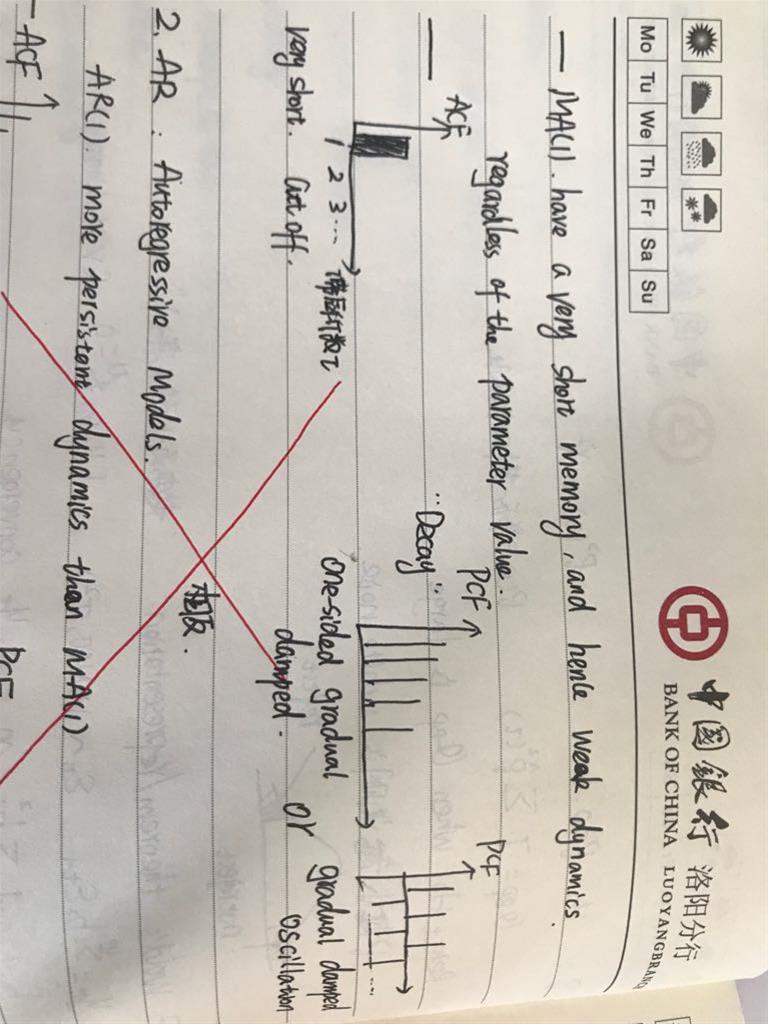 Mo Tu We Th Fr Sa Su
中國銀行 洛阳分行
BANK OF CHINA LUOYANGBRANC
— MA(1). have a very short memory, and hence weak dynamics.
regardless of the parameter value.
— ACF
"Decay"
PCF
PCF
1 2 3 ...
one-sided gradual
damped.
or
gradual damped
oscillation
very short. Cut off.
相反.
2. AR : Autoregressive Models.
AR(1). more persistent dynamics than MA(1)
- ACF
PCF